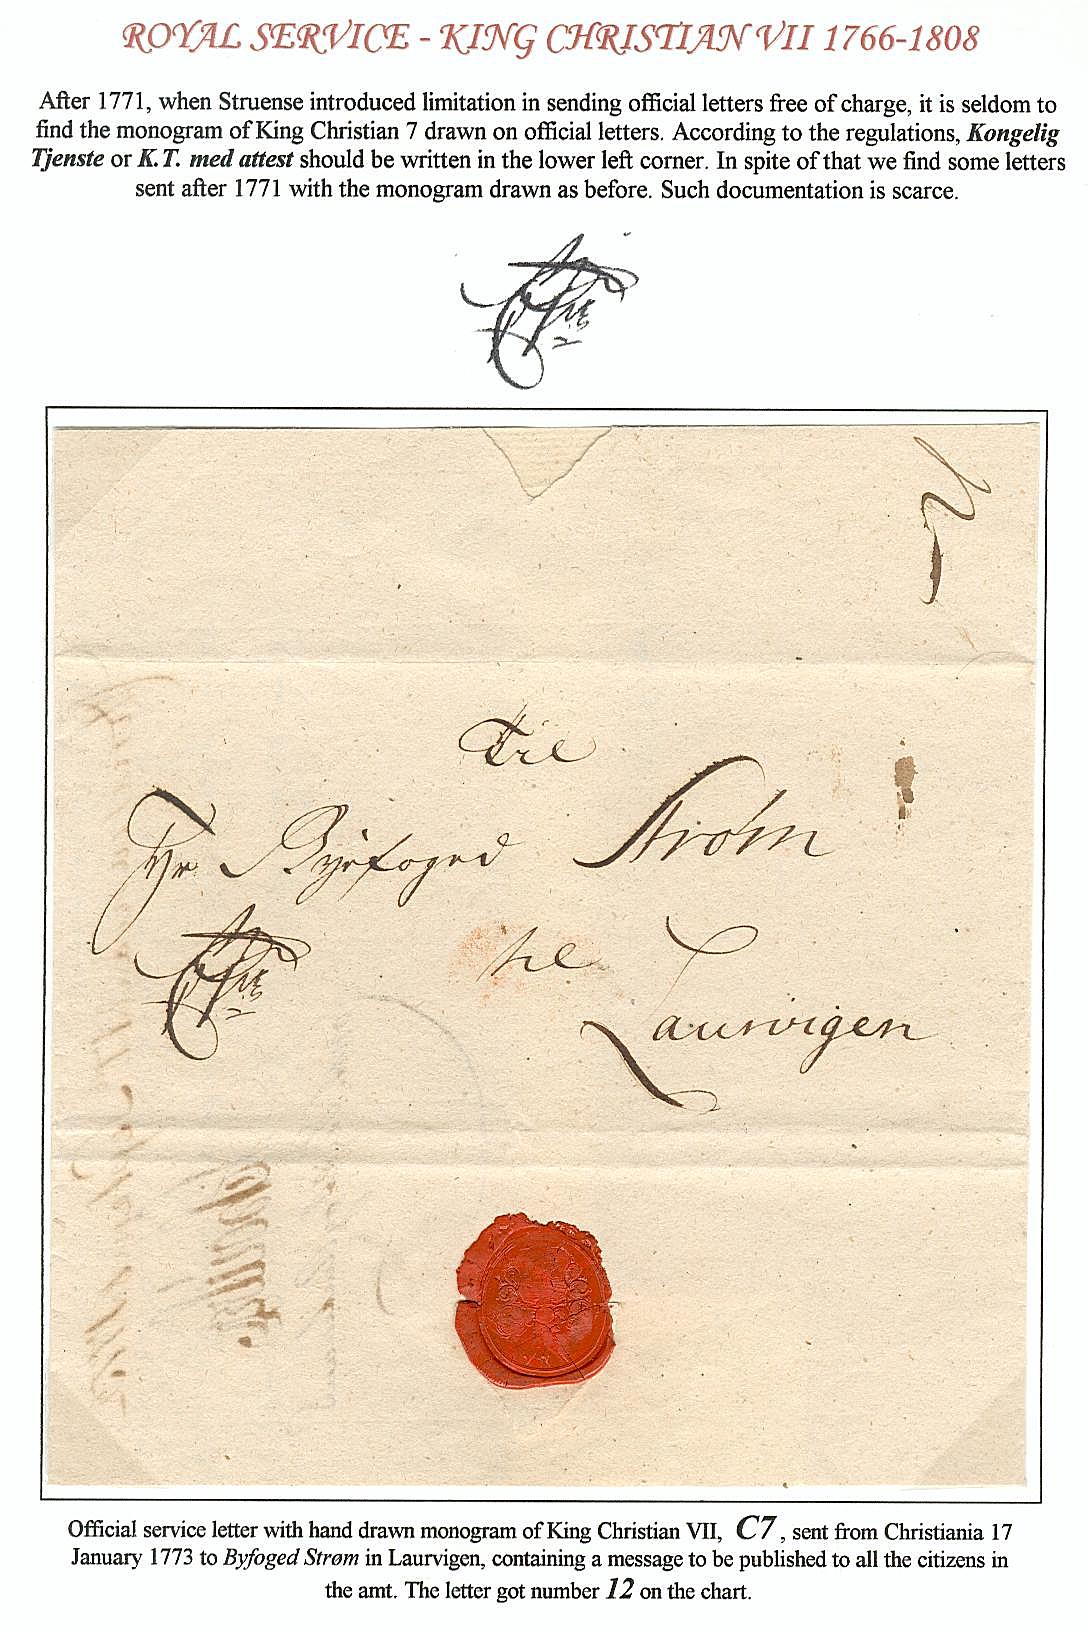 ROYAL SERVICE - KING CHRISTIAN VII 1766-1808
After 1771, when Struense introduced limitation in sending official letters free of charge, it is seldom to
find the monogram of King Christian 7 drawn on official letters. According to the regulations, Kongelig
Tjenste or K.T. med attest should be written in the lower left corner. In spite of that we find some letters
sent after 1771 with the monogram drawn as before. Such documentation is scarce.
Til
Hr Byefoged Strøm
til
Laurvigen
Official service letter with hand drawn monogram of King Christian VII, C7, sent from Christiania 17
January 1773 to Byfoged Strøm in Laurvigen, containing a message to be published to all the citizens in
the amt. The letter got number 12 on the chart.